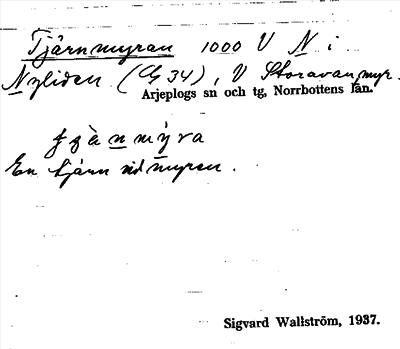 Tjärnmyran 1000 V N i
Nyliden (G 34), V Storavan, myr.
Arjeplogs sn och tg, Norrbottens län.
En tjärn vid myren.
Sigvard Wallström, 1937.